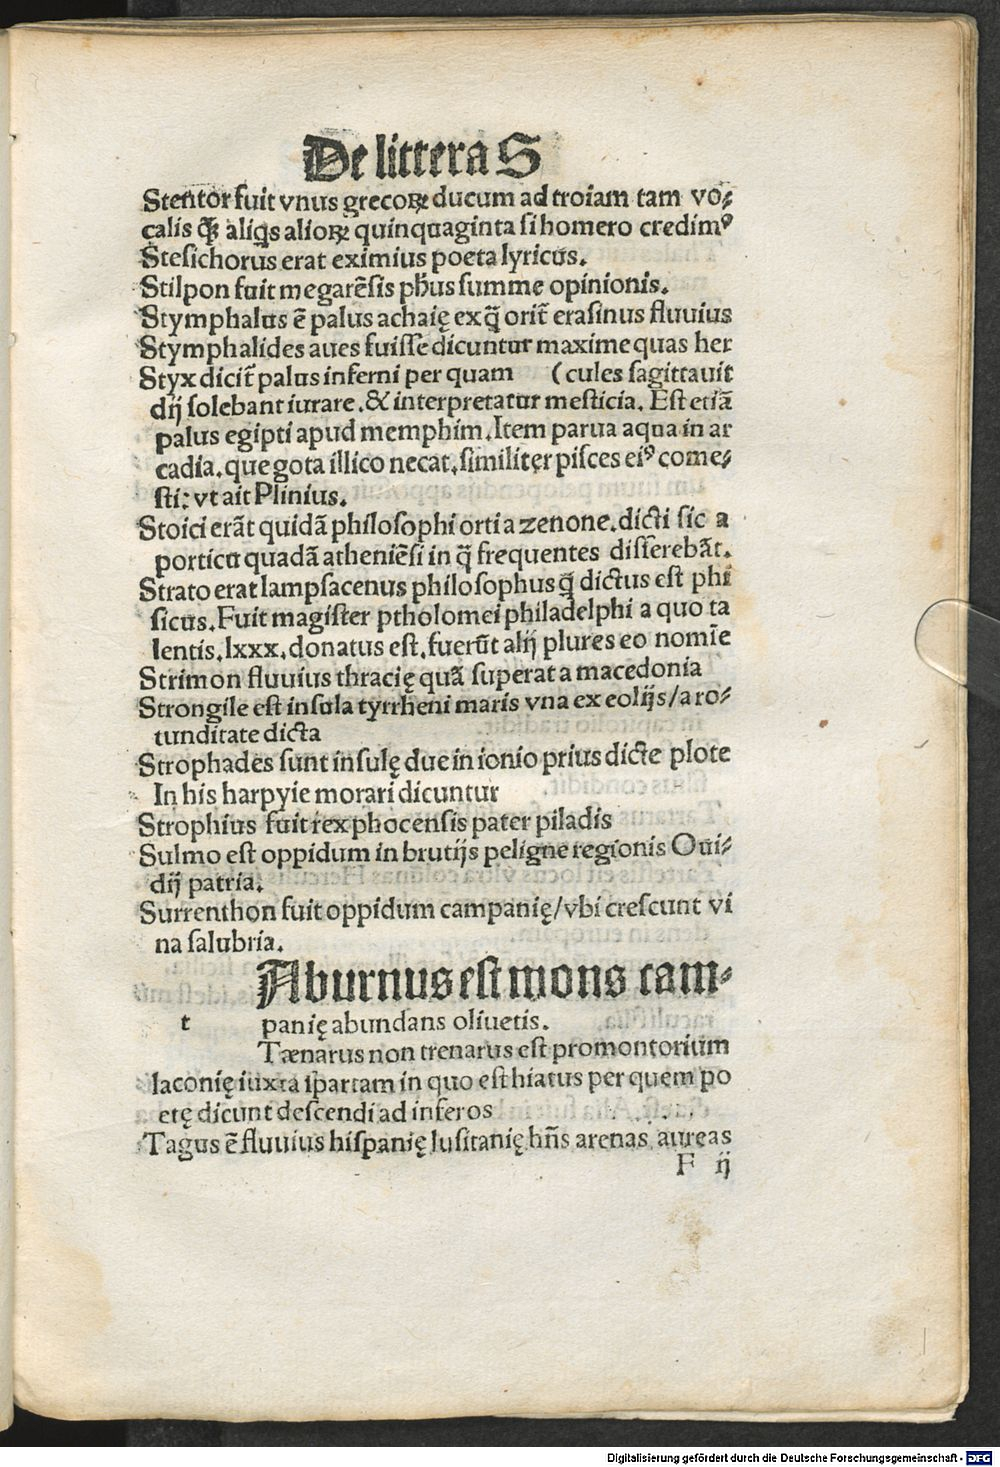 De littera S
Stentor fuit vnus grecoꝝ ducum ad troiam tam vo⸗
calis ꝙ̃ aliꝗs alioꝝ quinquaginta si homero credimꝰ
Stesichorus erat eximius poeta lyricus.
Stilpon fuit megarēsis ph̄us summe opinionis.
Stymphalus ē palus achaię ex q̄ orit̄ erasinus fluuius
Stymphalides aues fuisse dicuntur maxime quas her
Styx dicit̄ palus inferni per quam (cules sagittauit
dij solebant iurare. & interpretatur mesticia. Est etiā
palus egipti apud memphim. Item parua aqua in ar
cadia. que gota illico necat. similiter pisces eiꝰ come⸗
sti: vt ait Plinius.
Stoici erāt quidā philosophi orti a zenone. dicti sic a
porticu quadā atheniēsi in q̄ frequentes disserebāt.
Strato erat lampsacenus philosophus q̄ dictus est phi
sicus. Fuit magister ptholomei philadelphi a quo ta
lentis. lxxx. donatus est. fuerūt alij plures eo nomīe
Strimon fluuius thracię quā superat a macedonia
Strongile est insula tyrrheni maris vna ex eolijs/a ro⸗
tunditate dicta
Strophades sunt insulę due in ionio prius dicte plote
In his harpyie morari dicuntur
Strophius fuit rex phocensis pater piladis
Sulmo est oppidum in brutijs peligne regionis Oui⸗
dij patria.
Surrenthon fuit oppidum campanię/vbi crescunt vi
na salubria.
Aburnus est mons cam⸗
t panię abundans oliuetis.
Tænarus non trenarus est promontorium
laconię iuxta spartam in quo est hiatus per quem po
etę dicunt descendi ad inferos
Tagus ē fluuius hispanię lusitanię hn̄s arenas aureas
F ij
Digitalisierung gefördert durch die Deutsche Forschungsgemeinschaft - DFG